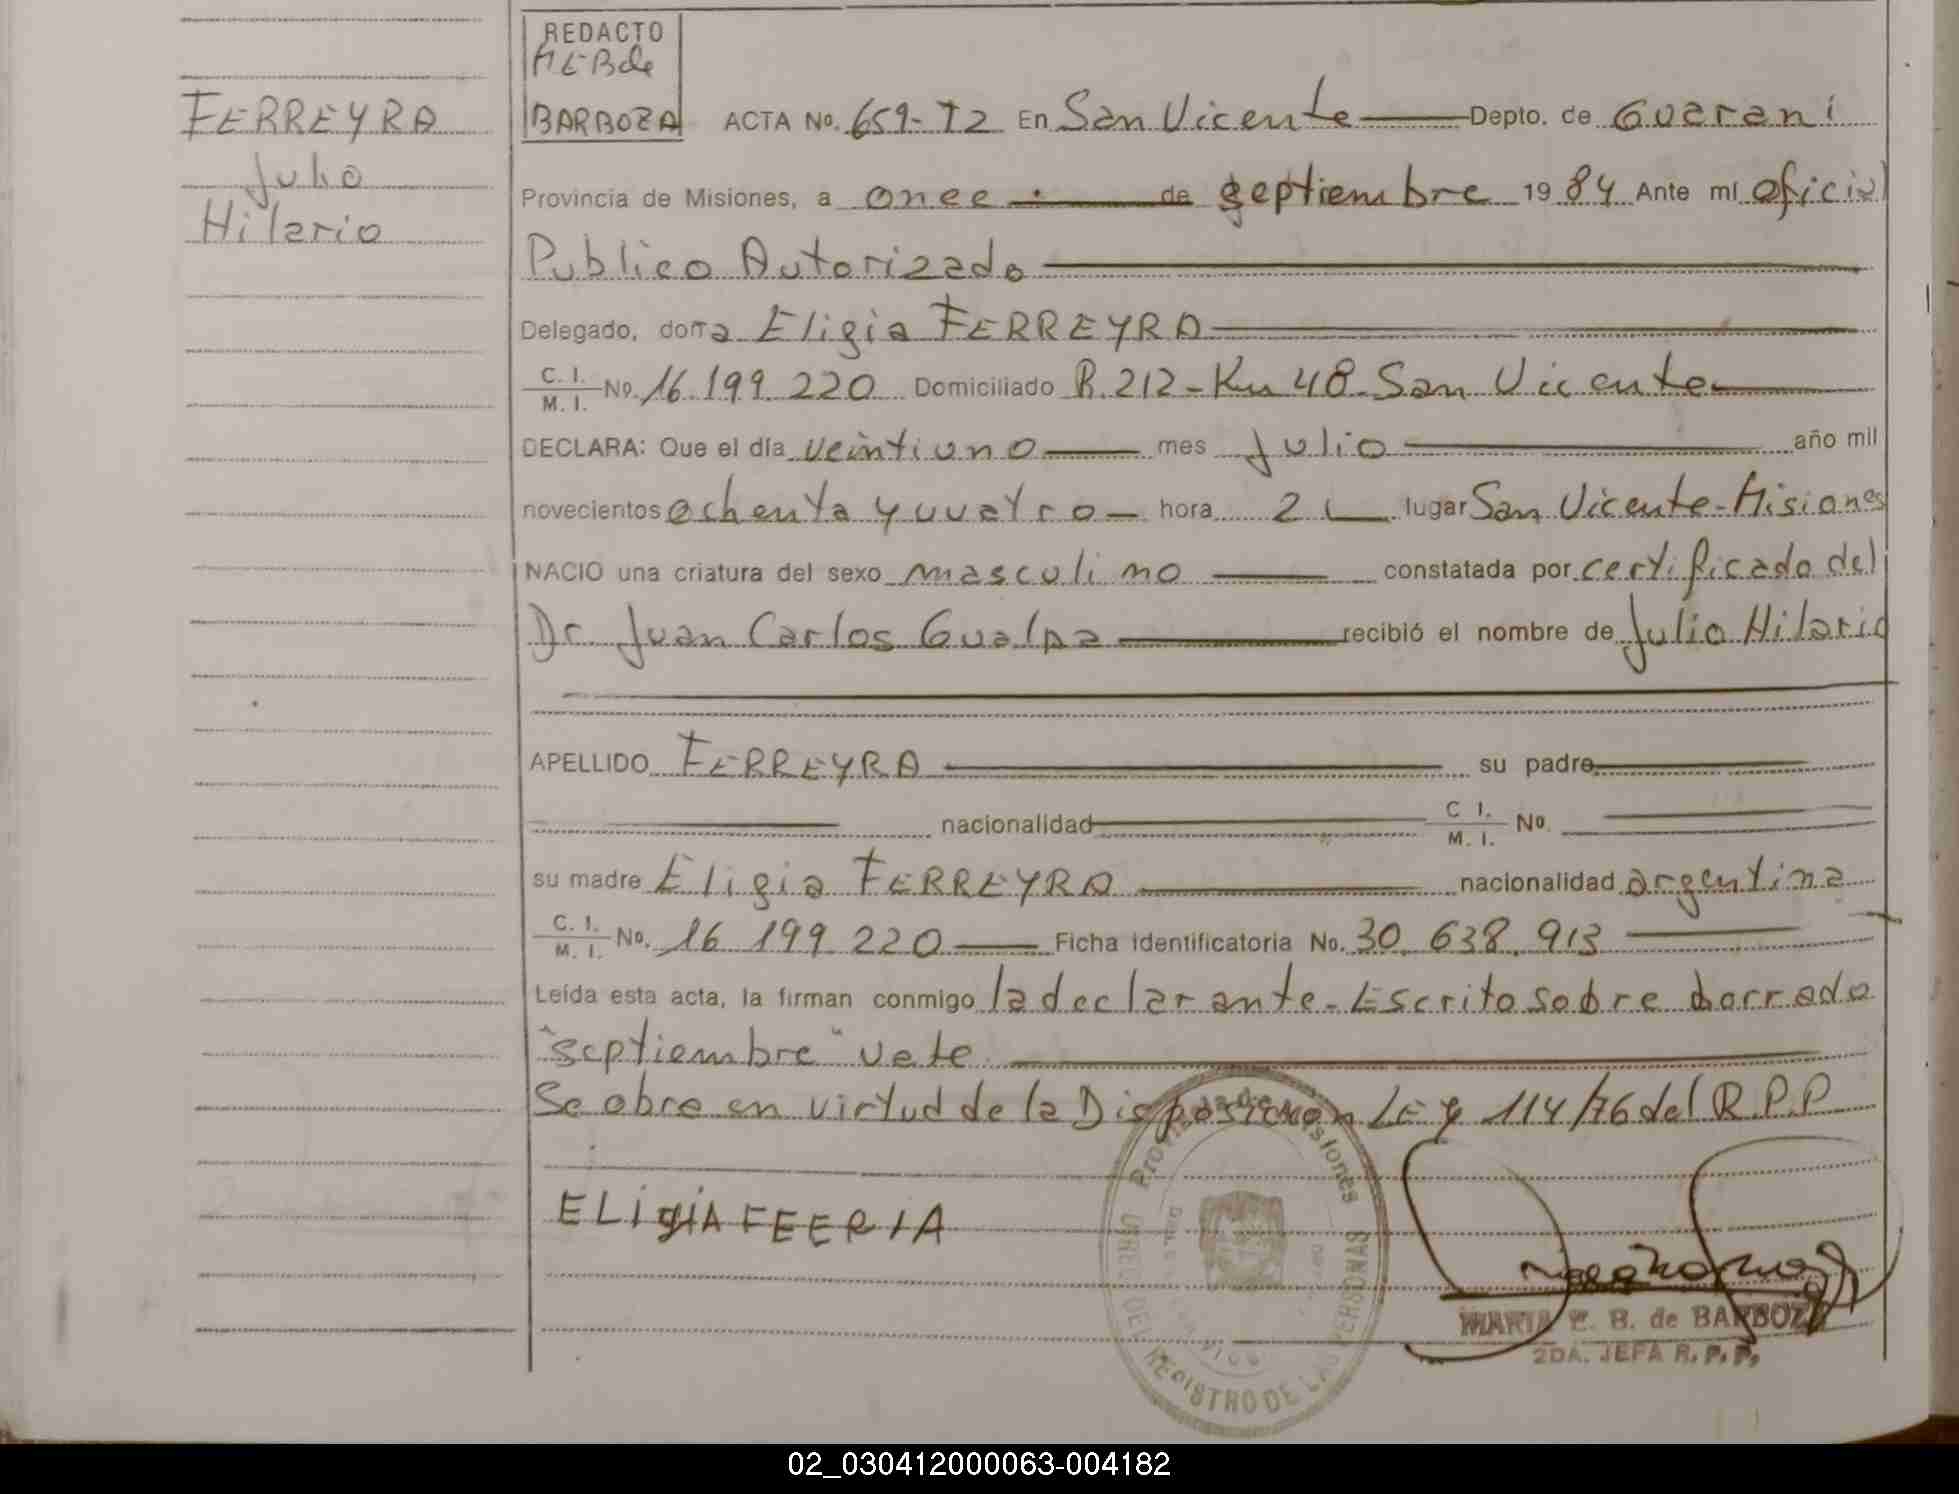 FERREYRA
Julio
Hilario
REDACTO
MEBde
BARBOZA
ACTA No. 659-T2 En San Vicente Depto. de Guarani
Provincia de Misiones, a once de septiembre 1984 Ante mí oficial
Publico Autorizado
Delegado, doña Eligia FERREYRA
C. I. / M. I. No. 16.199.220 Domiciliado R.212-Km 48-San Vicente
DECLARA: Que el día veintiuno mes Julio año mil
novecientos ochenta y cuatro hora 21 lugar San Vicente-Misiones
NACIO una criatura del sexo masculino constatada por certificado del
Dr. Juan Carlos Gualpa recibió el nombre de Julio Hilario
APELLIDO FERREYRA su padre
nacionalidad C. I. / M. I. No.
su madre Eligia FERREYRA nacionalidad argentina
C. I. / M. I. No. 16 199 220 Ficha Identificatoria No. 30.638.913
Leída esta acta, la firman conmigo la declarante-Escrito sobre borrado
"septiembre" vale
Se obra en virtud de la Disposicion LEy 114/76 del R.P.P
ELigiA FEERIA
Provincia de Misiones
REGISTRO DE LAS PERSONAS
MARIA E. B. de BARBOZA
2DA. JEFA R. P. P.
02_030412000063-004182